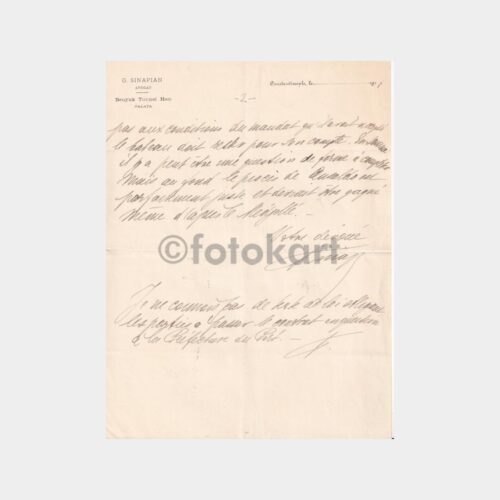 G. SINAPIAN
AVOCAT
Beuyuk Tunnel Han
GALATA
Constantinople, le 191
- 2 -
pas aux conditions du mandat qu'il avait accepté
le bateau doit rester pour son compte.
il y a peut être une question de forme à
Mais au fond le procès de est
parfaitement juste et devrait être gagné
même d'après la légalité. -
Votre dévoué
©fotokart
Je ne connais pas de texte de loi
les parties à passer le contrat en question
à la Préfecture du Port. -